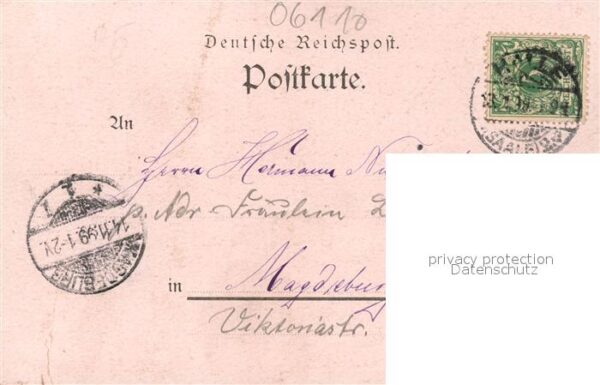 06110
Deutsche Reichspost.
Postkarte.
HALLE
(SAALE)
An
Herrn Hermann
p. Adr. Fräulein
MAGDEBURG
14.11.99.1-2N.
privacy protection
Datenschutz
in Magdeburg
Viktoriastr.